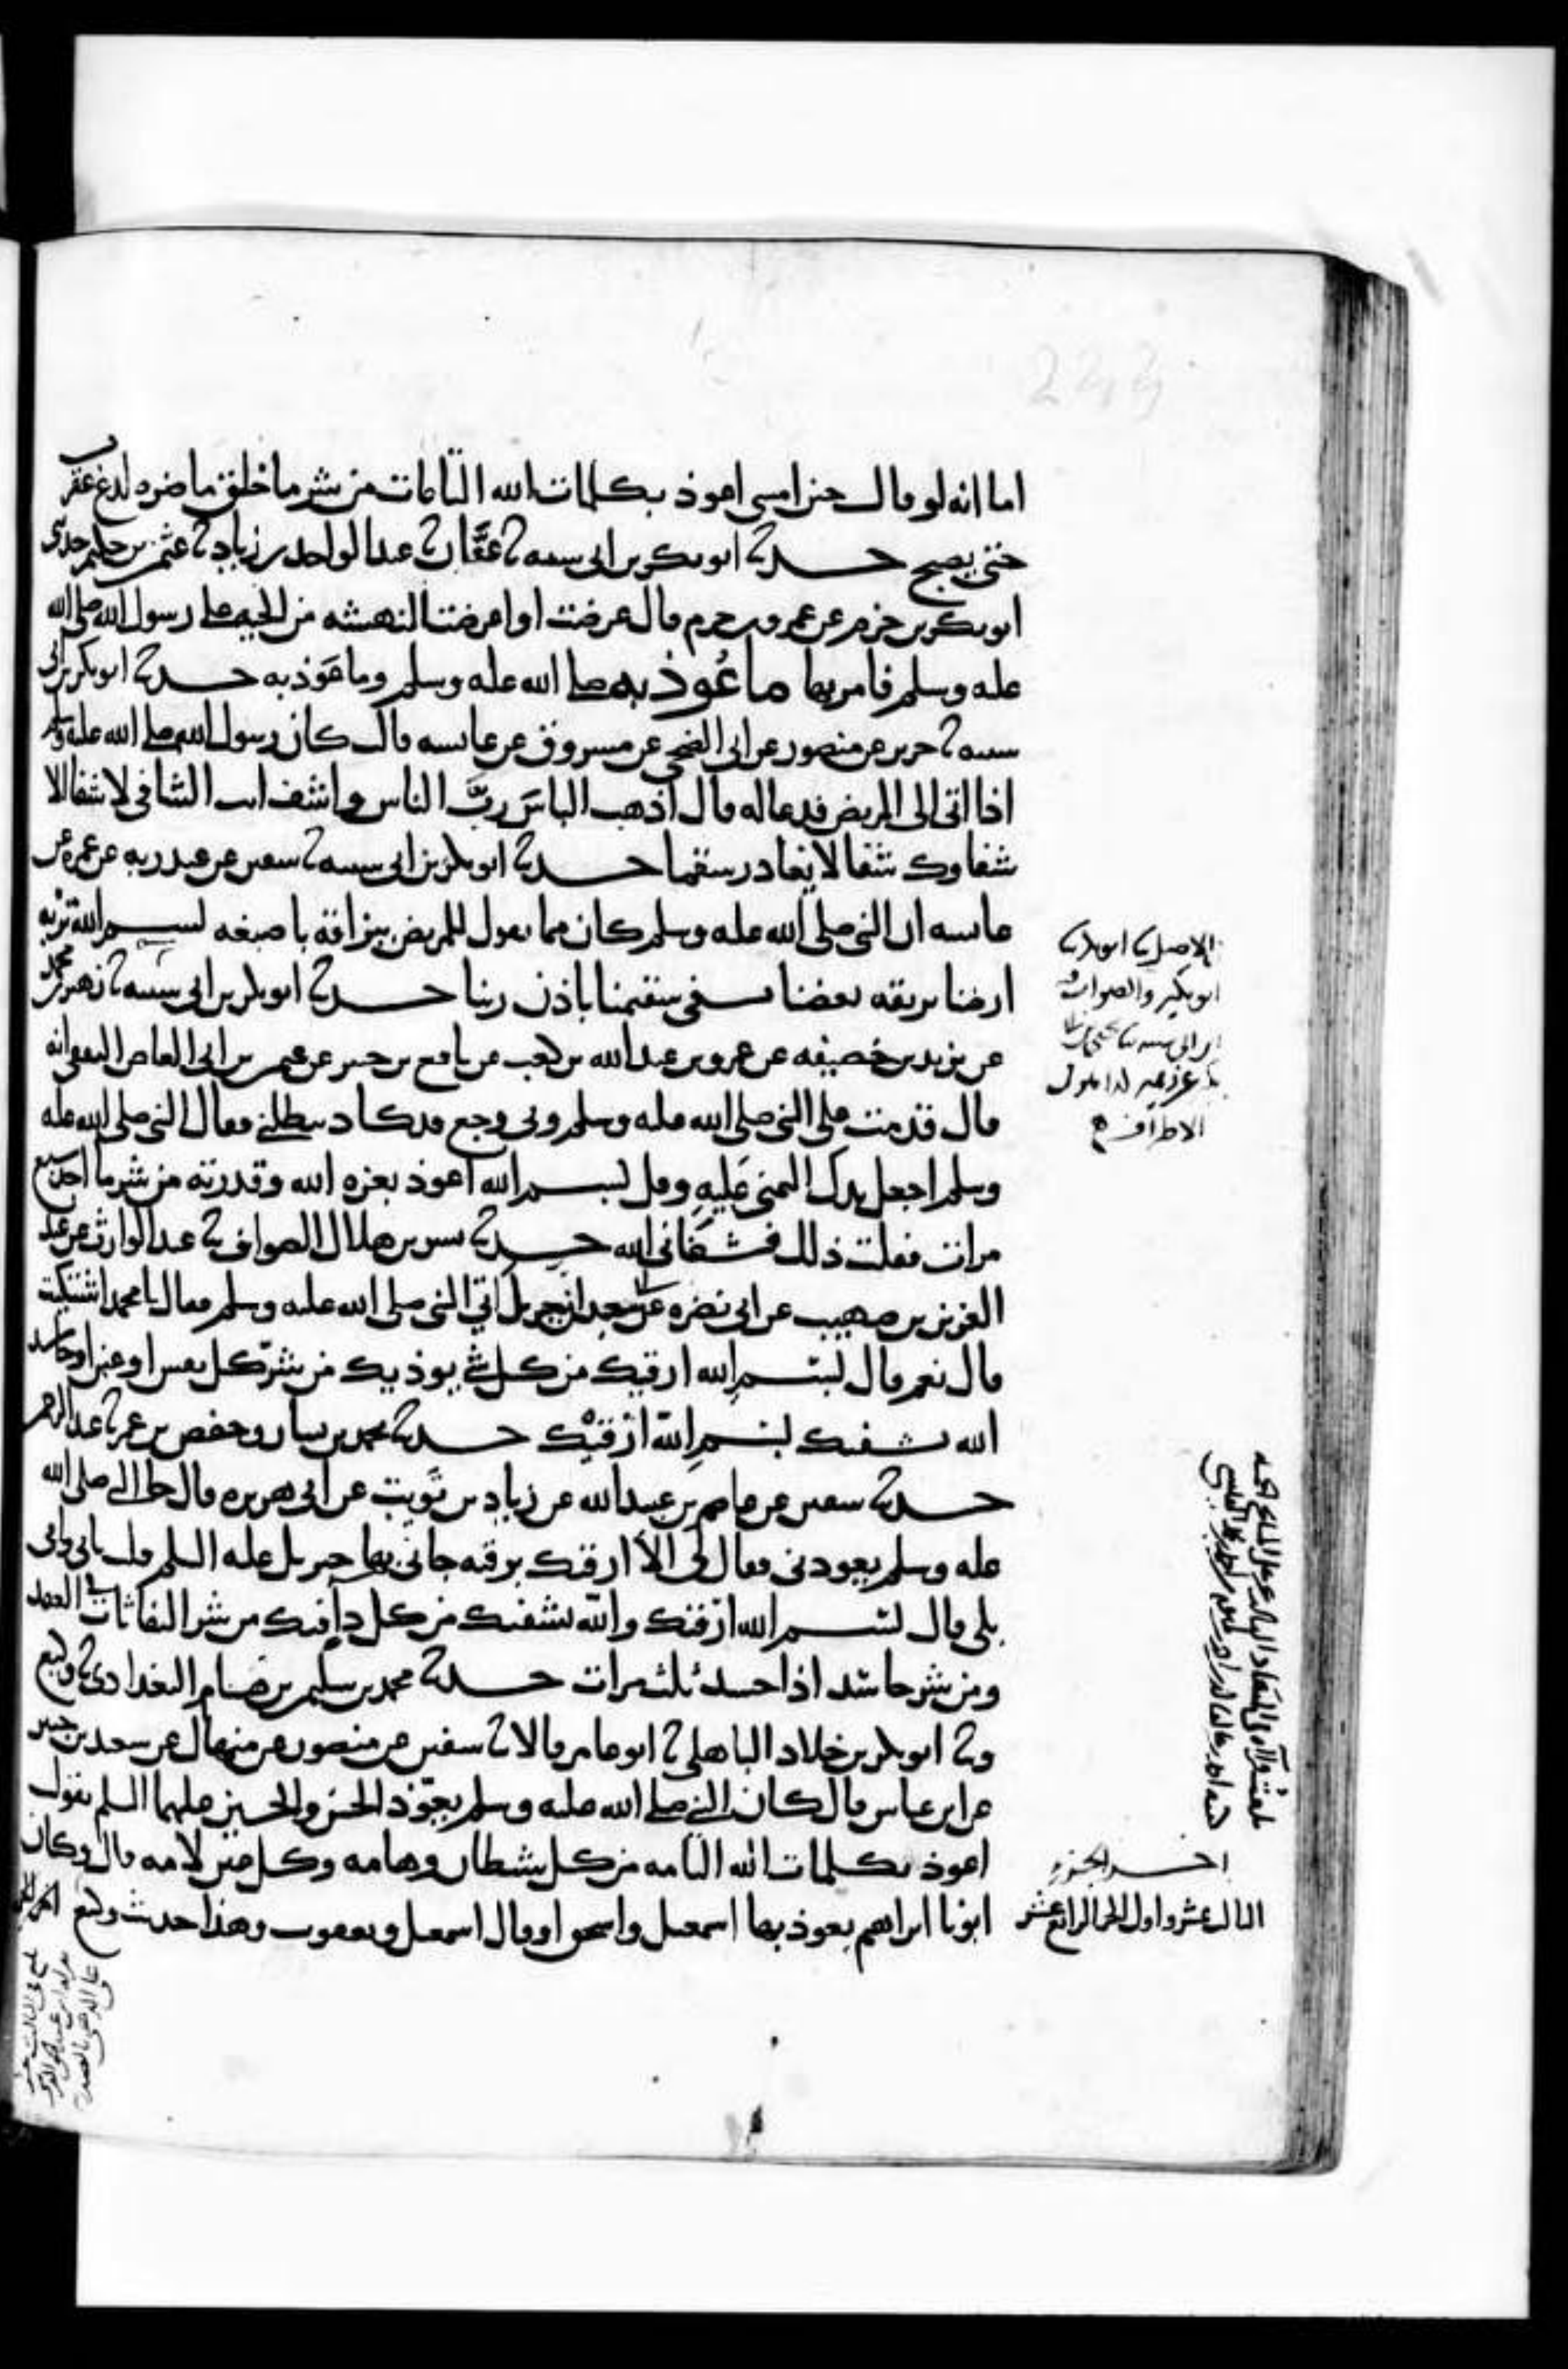 اما انه لو قال حين امسى اعوذ بكلمات الله التامات من شر ما خلق ما ضره لدغ عقرب
حتى يصبح حدثنا ابو بكر بن ابي شيبة ثنا عفان ثنا عبد الواحد بن زياد ثنا عثمن بن حكيم حدثني
ابو بكر بن حزم عن عمرو بن حزم قال عرضت او اعرضت النهشه من الحيه على رسول الله صلى الله
عليه وسلم فامر بها ما عُوّذ به صلى الله عليه وسلم وما عَوّذ به حدثنا ابو بكر بن ابي
شيبه ثنا جرير عن منصور عن ابي الضحى عن مسروق عن عايشه قال كان رسول الله صلى الله عليه وسلم
اذا اتى الى المريض فدعا له قال اذهب الباسَ ربَّ الناس واشف انت الشافي لا شفا الا
شفاوك شفا لا يغادر سقما حدثنا ابو بكر بن ابي شيبه ثنا سفين عن عبد ربه عن عمره عن
عايشه ان النبي صلى الله عليه وسلم كان مما يقول للمريض ببزاقه باصبعه بسم الله تربه
ارضنا بريقه بعضنا يشفى سقيمنا باذن ربنا حدثنا ابو بكر بن ابي شيبه ثنا زهير بن محمد
عن يزيد بن خصيفه عن عمرو بن عبد الله بن كعب عن نافع بن جبير عن عثمن بن ابي العاص الثقفي انه
قال قدمت على النبي صلى الله عليه وسلم وبي وجع قد كاد يبطلني فقال النبي صلى الله عليه
وسلم اجعل يدك اليمنى عَليهِ وقل بسم الله اعوذ بعزه الله وقدرته من شر ما اجد سبع
مرات فقلت ذلك فشفاني الله حدثنا بشر بن هلال الصواف ثنا عبد الوارث عن عبد
العزيز بن صهيب عن ابي نضره عن ابي سعيد ان جبريل اتي النبي صلى الله عليه وسلم فقال يا محمد اشتكيت
قال نعم قال بسم الله ارقيك من كل شي يوذيك من شر كل نفس او عين او حاسد
الله يشفيك بسم الله ارقيك حدثنا محمد بن بشار وحفص بن عمر ثنا عبد الرحمن
حدثنا سفين عن عاصم بن عبيد الله عن زياد بن ثويب عن ابي هريره قال جا النبي صلى الله
عليه وسلم يعودني فقال لي الا ارقيك برقيه جاني بها جبريل عليه السلم قلت بابي وامي
بلى قال بسم الله ارقيك والله يشفيك من كل دا فيك من شر النفاثات في العقد
ومن شر حاسد اذا حسد ثلث مرات حدثنا محمد بن سليمن بن هشام البغدادي ثنا وكيع
وثنا ابو بكر بن خلاد الباهلي ثنا ابو عامر قالا ثنا سفين عن منصور عن منهال عن سعيد بن جبير
عن ابن عباس قال كان النبي صلى الله عليه وسلم يعوّذ الحسن والحسين عليهما السلم يقول
اعوذ بكلمات الله التامه من كل شيطان وهامه وكل عين لامه قال وكان
ابونا ابراهيم يعوذ بها اسمعيل واسحق او قال اسمعيل ويعقوب وهذا حديث وكيع
الاصل ثنا ابو بكر ثنا
ابو بكير والصواب
ابن ابي شيبه ثنا يحيى بن ابي
بكير عن زهير
الاطراف
اخر الجزء
الثالث عشر واول الجزء الرابع عشر